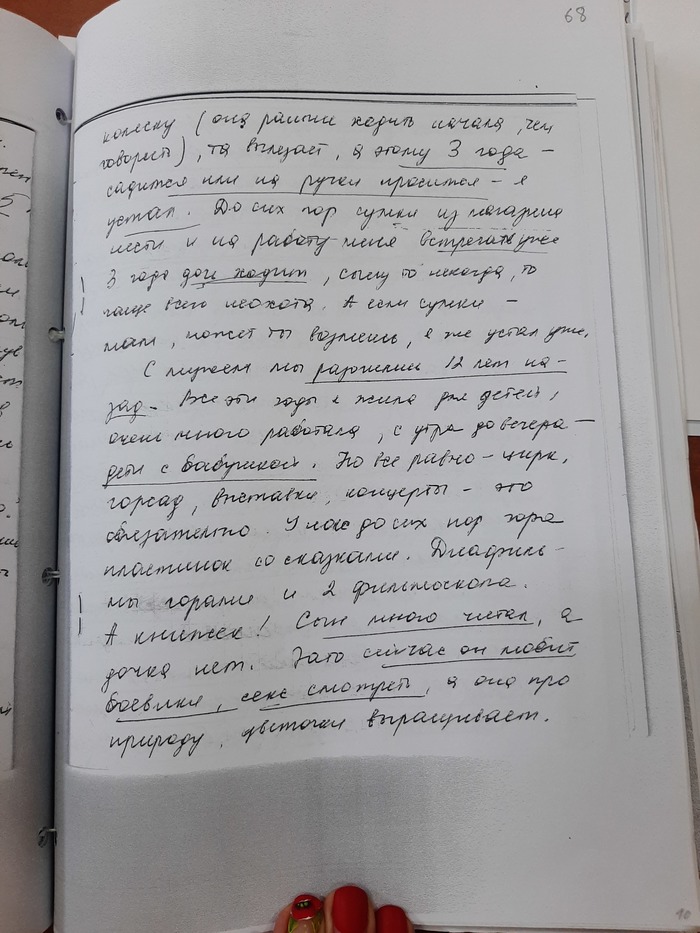 68
коляску (она раньше ходить начала, чем
говорить), та вылезает, а этому 3 года –
садится или на ручки просится – я
устал. До сих пор сумки из магазина
нести и на работу меня встречать уже
3 года дочь ходит, сыну то некогда, то
чаще всего неохота. А если сумки –
мам, может ты возьмешь, я же устал уже.
С мужем мы разошлись 12 лет на-
зад. Все эти годы я жила для детей,
очень много работала, с утра до вечера –
дети с бабушкой. Но все равно – цирк,
горсад, выставки, концерты – это
обязательно. У нас до сих пор гора
пластинок со сказками. Диафиль-
мы горами и 2 фильмоскопа.
А книжек! Сын много читал, а
дочка нет. Зато сейчас он любит
боевики, секс смотреть, а она про
природу, цветочки выращивает.
10